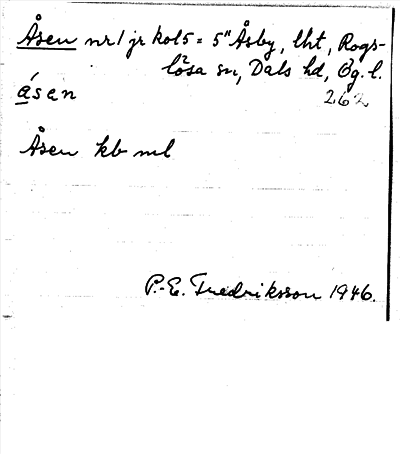 Åsen nr 1 jr kol 5 = 5" Åsby, lht, Rogs-
lösa sn, Dals hd, Ög. l.
åsan 262
Åsen kb ml
P.-E. Fredriksson 1946.